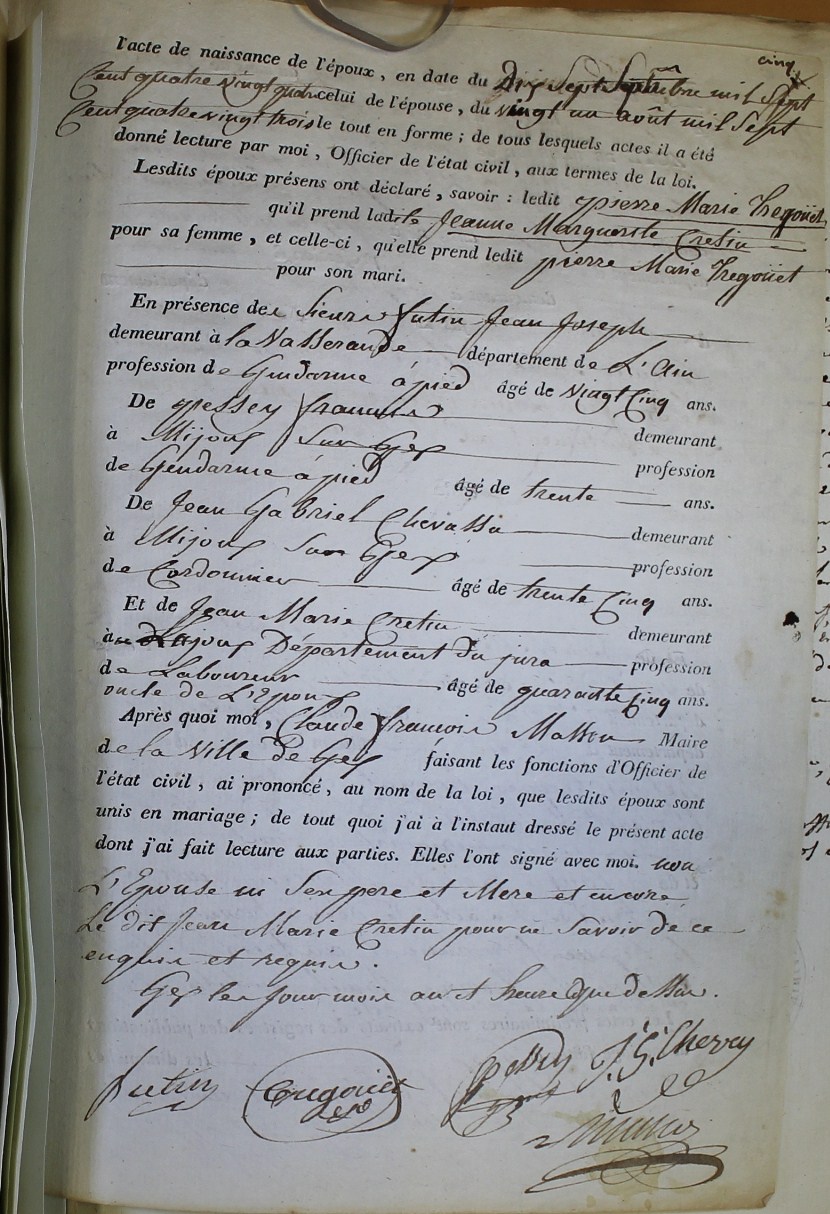 l'acte de naissance de l'époux, en date du Dix Sept Septembre mil Sept cinq
Cent quatre vingt quatre celui de l'épouse, du vingt un août mil Sept
Cent quatre vingt trois le tout en forme ; de tous lesquels actes il a été
donné lecture par moi, Officier de l'état civil, aux termes de la loi.
Lesdits époux présens ont déclaré, savoir : ledit pierre Marie Tregoüet
qu'il prend ladite Jeanne Marguerite Cretin
pour sa femme, et celle-ci, qu'elle prend ledit pierre Marie Tregoüet
pour son mari.
En présence de Sieurs futin Jean Joseph
demeurant à la Vasserande département de L'Ain
profession de Gendarme à pied âgé de vingt Cinq ans.
De françois demeurant
à Mijoux Sur Gex profession
de Gendarme à pied âgé de trente ans.
De Jean Gabriel Chevassu demeurant
à Mijoux Sur Gex profession
de Cordonnier âgé de trente Cinq ans.
Et de Jean Marie Cretin demeurant
à Mijoux Département du jura profession
de Laboureur âgé de quarante Cinq ans.
oncle de L'Epouse
Après quoi moi, Claude françois Masson Maire
de la Ville de Gex faisant les fonctions d'Officier de
l'état civil, ai prononcé, au nom de la loi, que lesdits époux sont
unis en mariage ; de tout quoi j'ai à l'instaut dressé le présent acte
dont j'ai fait lecture aux parties. Elles l'ont signé avec moi. non
L'Epouse ni Ses pere et Mere et encore
Le dit Jean Marie Cretin pour ne Savoir de ce
enquis et requis.
Gex les jour mois an et heure que dessus.
futin Tregouët J. G. Chevassu
Masson